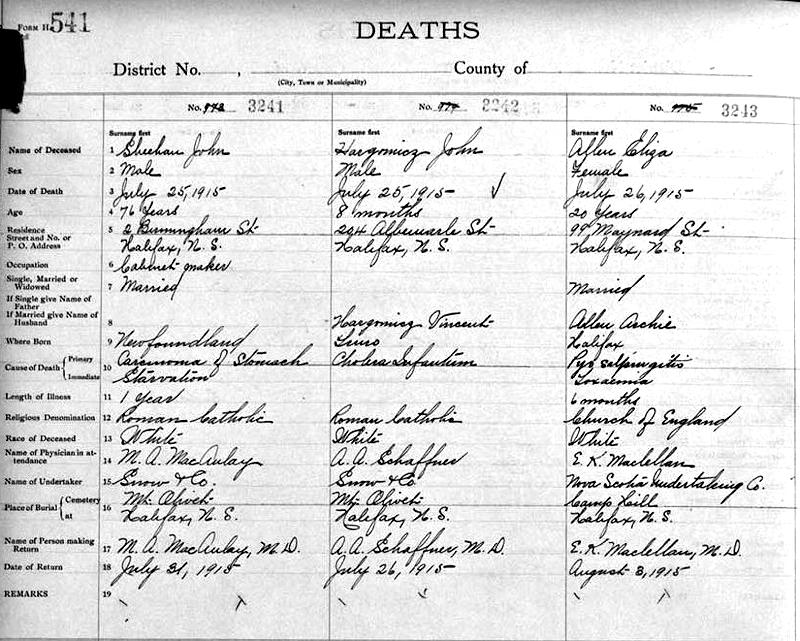 FORM H.
541
DEATHS
District No. , County of
(City, Town or Municipality)
No. 973 3241 No. 974 3242 No. 975 3243
Surname first Surname first Surname first
Name of Deceased 1 Sheehan John Hargomicz John Adlen Eliza
Sex 2 Male Male Female
Date of Death 3 July 25, 1915 July 25, 1915 July 26, 1915
Age 4 76 Years 8 months 20 Years
Residence 5 2 Birmingham St 294 Albemarle St 99 Maynard St
Street and No. or
P. O. Address Halifax, N. S. Halifax, N. S. Halifax, N. S.
Occupation 6 Cabinet maker
Single, Married or
Widowed 7 Married Married
If Single give Name of
Father
If Married give Name of
Husband 8 Hargomicz Vincent Adlen Archie
Where Born 9 Newfoundland Truro Halifax
Cause of Death Primary 10 Carcinoma of Stomach Cholera Infantum Pyo salpingitis
Immediate Starvation Toxaemia
Length of Illness 11 1 Year 6 months
Religious Denomination 12 Roman Catholic Roman Catholic Church of England
Race of Deceased 13 White White White
Name of Physician in at-
tendance 14 M. A. MacAulay A. A. Schaffner E. K. Maclellan
Name of Undertaker 15 Snow & Co. Snow & Co. Nova Scotia Undertaking Co.
Place of Burial Cemetery 16 Mt. Olivet Mt. Olivet Camp Hill
at Halifax, N. S. Halifax, N. S. Halifax, N. S.
Name of Person making
Return 17 M. A. MacAulay, M. D. A. A. Schaffner, M. D. E. K. Maclellan, M. D.
Date of Return 18 July 31, 1915 July 26, 1915 August 3, 1915
REMARKS 19